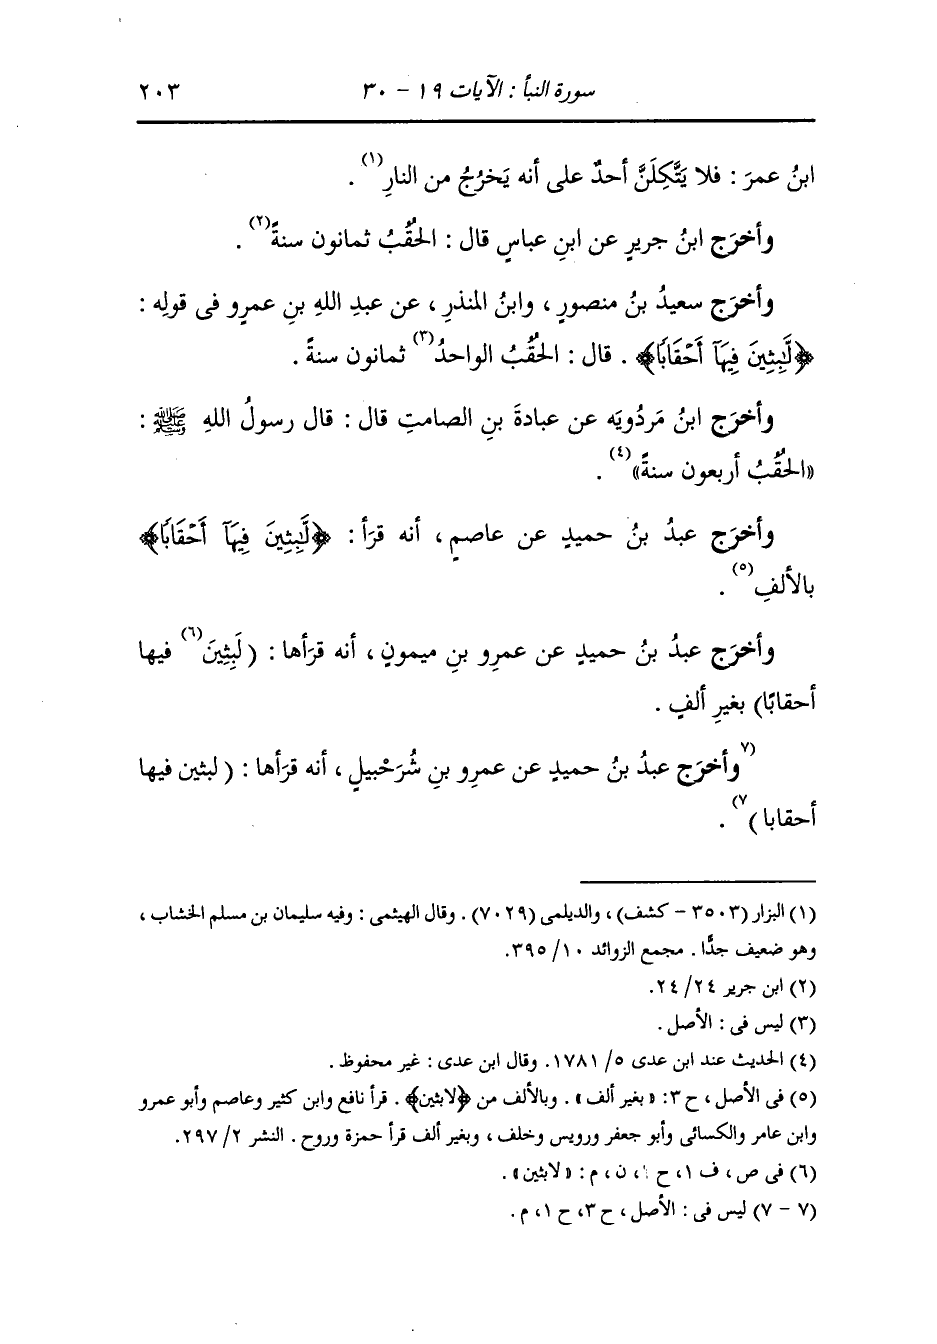 سورة النبأ : الآيات ١٩ - ٣٠ ٢٠٣
ابنُ عمرَ : فلا يَتَّكِلَنَّ أحدٌ على أنه يَخرُجُ من النارِ(١) .
وأخرَج ابنُ جريرٍ عن ابنِ عباسٍ قال : الحُقُبُ ثمانون سنةً(٢) .
وأخرَج سعيدُ بنُ منصورٍ ، وابنُ المنذرِ ، عن عبدِ اللهِ بنِ عمرٍو فى قولِه :
﴿لَّٰبِثِينَ فِيهَآ أَحْقَابًا﴾ . قال : الحُقُبُ الواحدُ(٣) ثمانون سنةً .
وأخرَج ابنُ مَردُويَه عن عبادةَ بنِ الصامتِ قال : قال رسولُ اللهِ ﷺ :
«الحُقُبُ أربعون سنةً»(٤) .
وأخرَج عبدُ بنُ حميدٍ عن عاصمٍ ، أنه قرَأ : ﴿لَّٰبِثِينَ فِيهَآ أَحْقَابًا﴾
بالألفِ(٥) .
وأخرَج عبدُ بنُ حميدٍ عن عمرِو بنِ ميمونٍ ، أنه قرَأها : ( لَبِثِينَ(٦) فيها
أحقابًا) بغيرِ ألفٍ .
(٧وأخرَج عبدُ بنُ حميدٍ عن عمرِو بنِ شُرَحْبيلٍ ، أنه قرَأها : ( لبثين فيها
أحقابا )٧) .
(١) البزار (٣٥٠٣ - كشف) ، والديلمى (٧٠٢٩) . وقال الهيثمى : وفيه سليمان بن مسلم الخشاب ،
وهو ضعيف جدًّا . مجمع الزوائد ١٠/ ٣٩٥.
(٢) ابن جرير ٢٤/ ٢٤.
(٣) ليس فى : الأصل .
(٤) الحديث عند ابن عدى ٥/ ١٧٨١. وقال ابن عدى : غير محفوظ .
(٥) فى الأصل ، ح ٣: «بغير ألف» . وبالألف من ﴿لابثين﴾ . قرأ نافع وابن كثير وعاصم وأبو عمرو
وابن عامر والكسائى وأبو جعفر ورويس وخلف ، وبغير ألف قرأ حمزة وروح . النشر ٢/ ٢٩٧.
(٦) فى ص ، ف ١، ح ١، ن ، م : «لابثين» .
(٧ - ٧) ليس فى : الأصل ، ح ٣، ح ١، م .